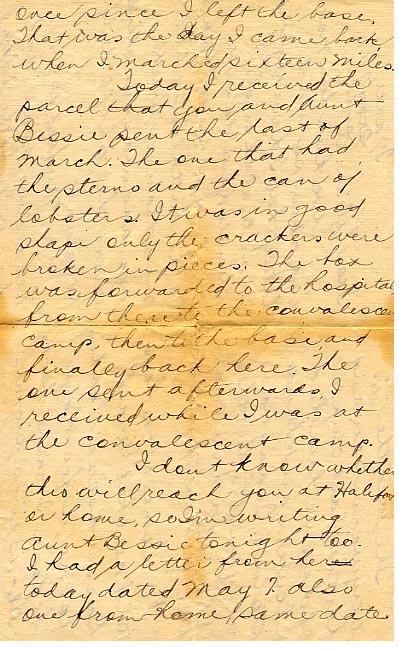 once since I left the base.
That was the day I came back
when I marched sixteen miles.
Today I received the
parcel that you and Aunt
Bessie sent the last of
March. The one that had
the sterno and the can of
lobsters. It was in good
shape only the crackers were
broken in pieces. The box
was forwarded to the hospital
from there to the convalesce
camp, then to the base, and
finally back here. The
one sent afterwards, I
received while I was at
the convalescent camp.
I dont know whether
this will reach you at Halifax
or home, so Im writing
Aunt Bessie tonight too.
I had a letter from her
today dated May 7. also
one from home, same date